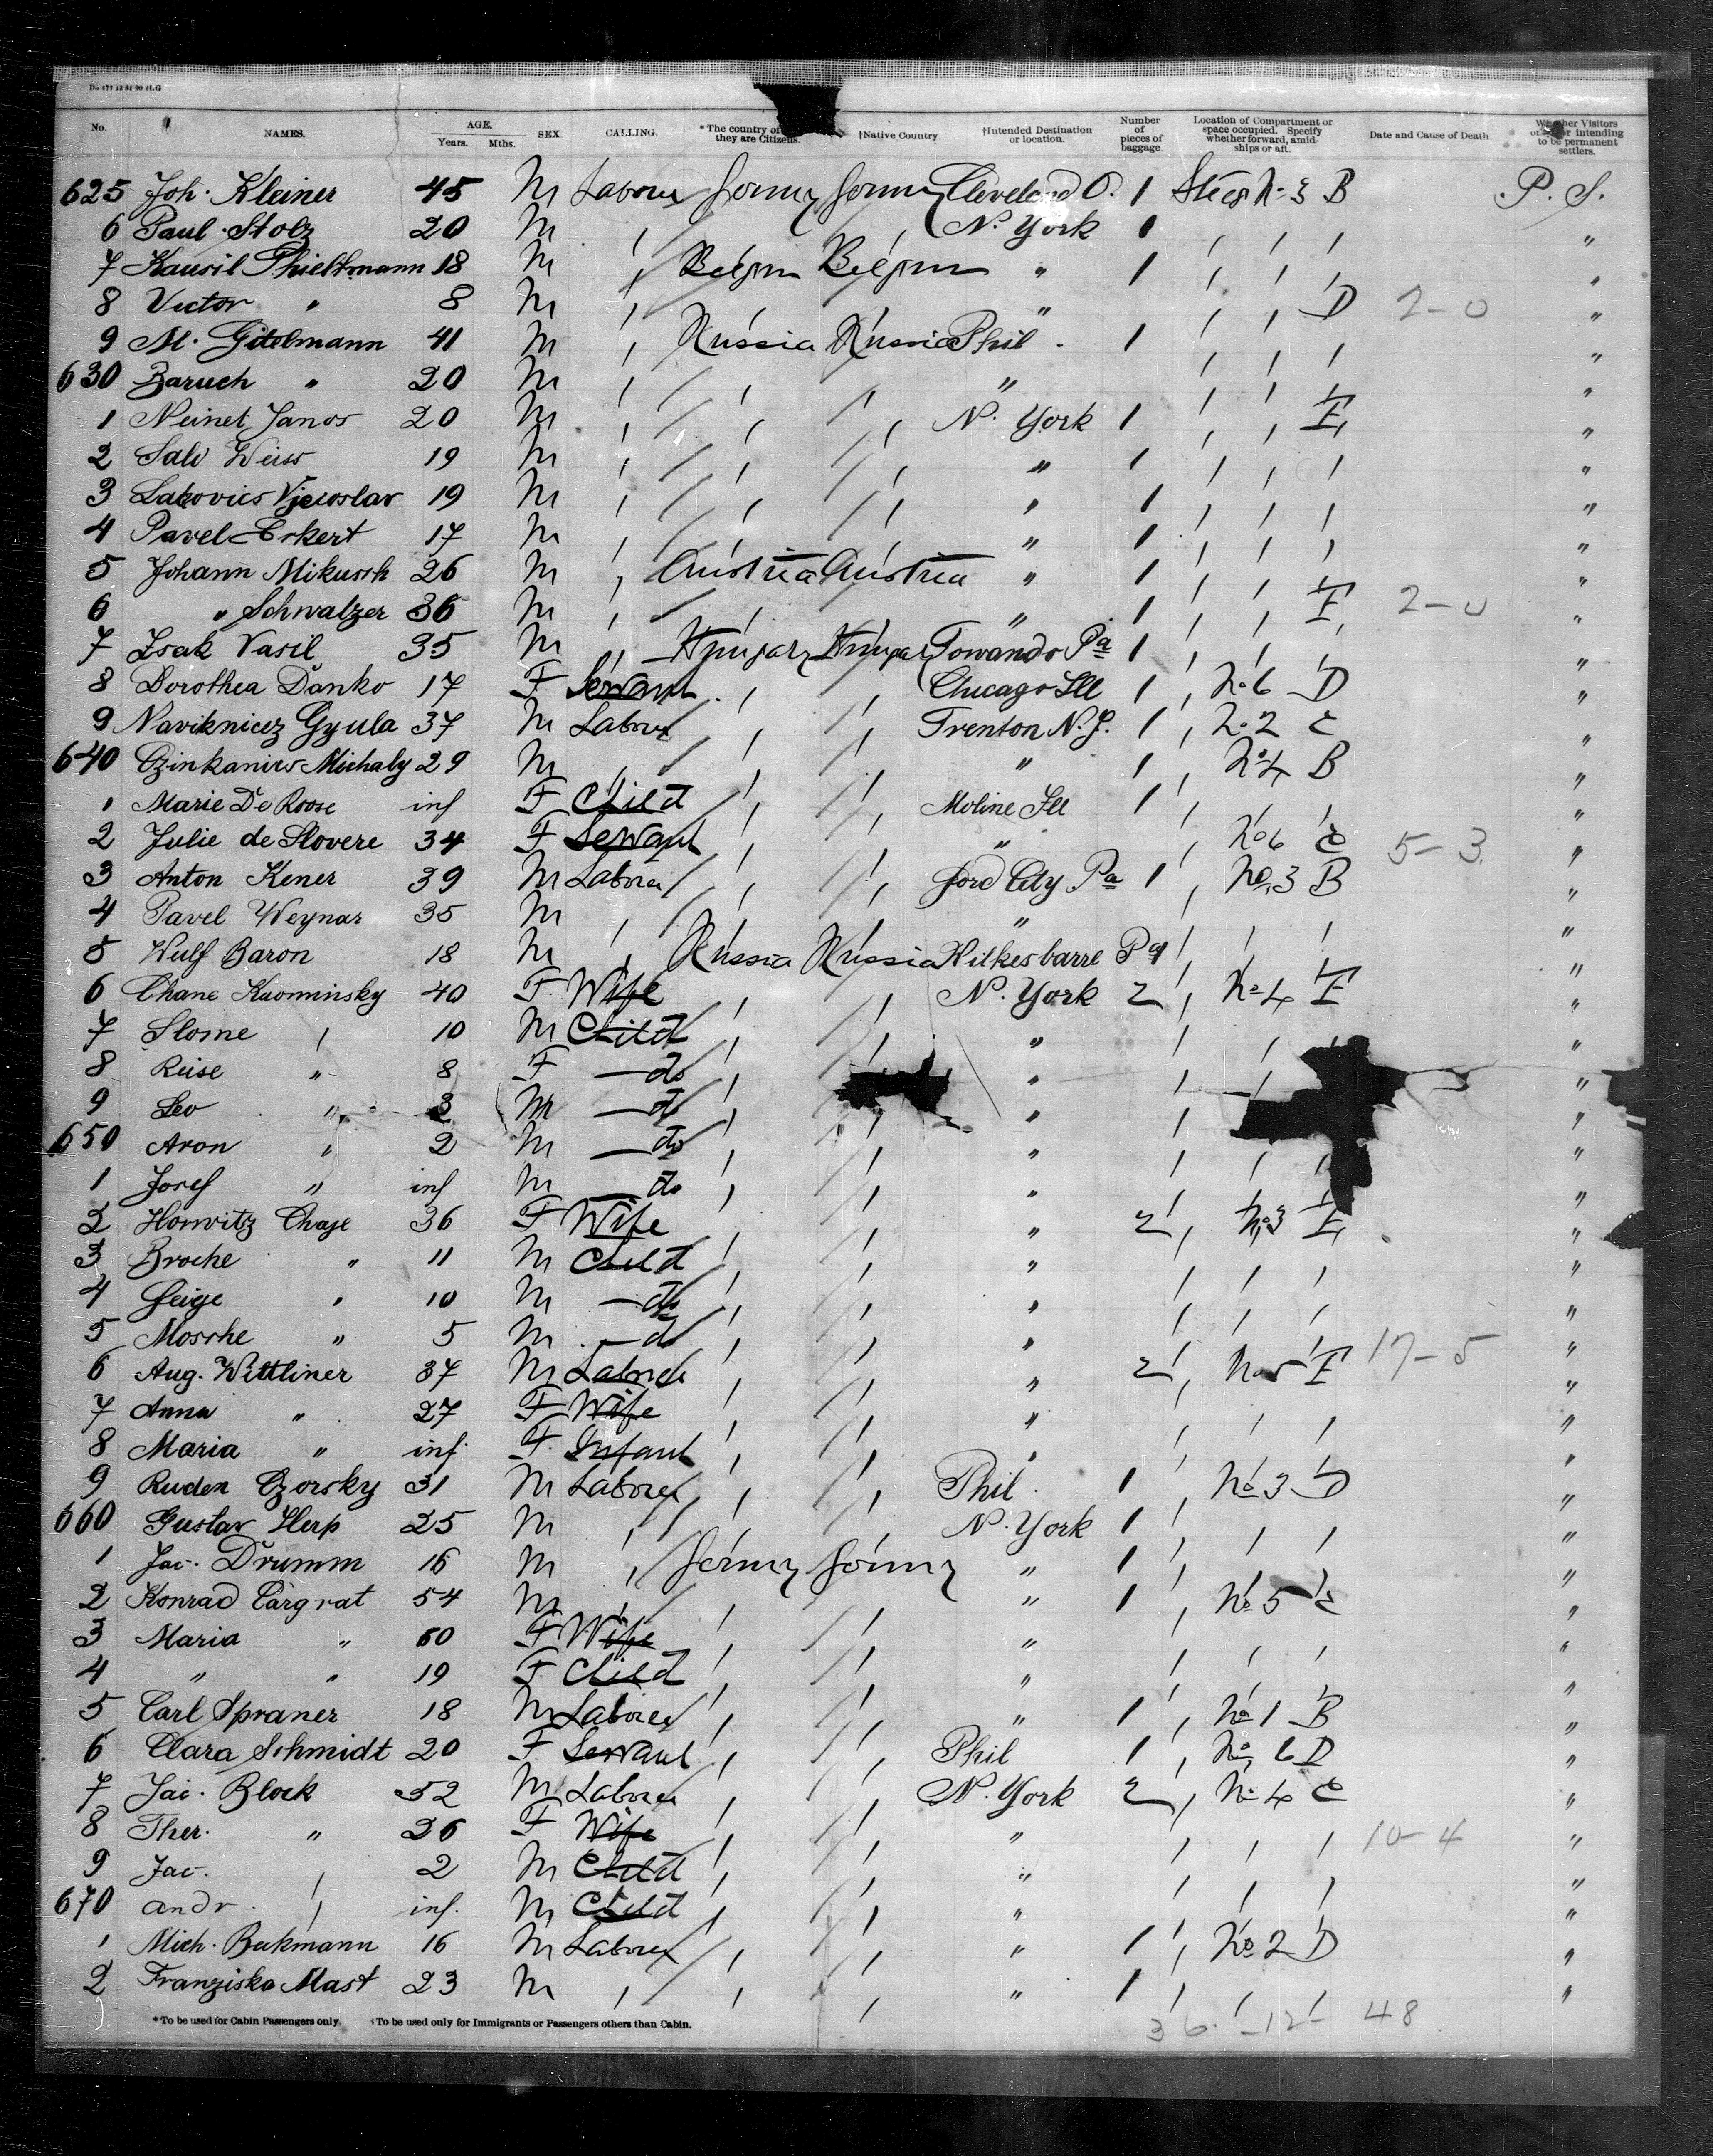 Do 477 12 31 90 H.G
No. NAMES. AGE. Years. Mths. SEX CALLING. *The country of they are Citizens. †Native Country †Intended Destination or location. Number of pieces of baggage Location of Compartment or space occupied. Specify whether forward, amidships or aft. Date and Cause of Death Whether Visitors or intending to be permanent settlers.
625 Joh. Kleiner 45 M Labourer Germy Germy Cleveland O. 1 Steeg No 3 B P. S.
6 Paul Stolz 20 M N. York 1 "
7 Thieltmann 18 M Belgium Belgium " 1 "
8 Victor " 8 M " D 2-0 "
9 M. Gitelmann 41 M Russia Russia Phil. 1 "
630 Baruch " 20 M " "
1 Neinet Janos 20 M N. York 1 E "
2 Salo Weiss 19 M " 1 "
3 19 M " 1 "
4 Pavel Erkert 17 M " 1 "
5 Johann Mikussh 26 M Austria Austria " 1 "
6 " Schwalzer 36 M " 1 E 2-0 "
7 Isak Vasil 35 M Hungary Hungary Towando Pa 1 "
8 Dorothea Danko 17 F Servant Chicago Ill 1 No 6 D "
9 Naviknicz Gyula 37 M Labourer Trenton N.J. 1 No 2 C "
640 Michaly 29 M " 1 No 4 B "
1 Marie De Roose inf F Child Moline Ill 1 "
2 Julie de Slovere 34 F Servant " No 6 C 5-3 "
3 Anton Kener 39 M Labourer Ford City Pa 1 No 3 B "
4 Pavel Weynar 35 M " "
5 Wulf Baron 18 M Russia Russia Wilkesbarre Pa 1 "
6 Chane Kaominsky 40 F Wife N. York 2 No 4 E "
7 Slome " 10 M Child " "
8 Reise " 8 F do " "
9 Leo " 3 M do " "
650 Aron " 2 M do " "
1 Josef " inf M do " "
2 Horwitz Chaje 36 F Wife " 2 No 3 E "
3 Broche " 11 M Child " "
4 Feige " 10 M do " "
5 Mosche " 5 M do " "
6 Aug. Wittliner 37 M Labourer " 2 No 5 E 17-5 "
7 Anna " 27 F Wife " "
8 Maria " inf. F. Infant " "
9 Ruden Czorsky 31 M Labourer Phil. 1 No 3 D "
660 Gustav Herp 25 M N. York 1 "
1 Jac. Drumm 16 M Germy Germy " 1 "
2 Konrad Cargrat 54 M " 1 No 5 C "
3 Maria " 60 F Wife " "
4 " " 19 F Child " "
5 Carl Spraner 18 M Labourer " 1 No 1 B "
6 Clara Schmidt 20 F Servant Phil 1 No 6 D "
7 Jac. Block 32 M Labourer N. York 2 No 4 C "
8 Ther. " 26 F Wife " 10-4 "
9 Jac. " 2 M Child " "
670 Andr. " inf. M Child " "
1 Mich. Beekmann 16 M Labourer " 1 No 2 D "
2 Franziska Mast 23 M " 1 "
*To be used for Cabin Passengers only. †To be used only for Immigrants or Passengers others than Cabin.
36 - 12 - 48